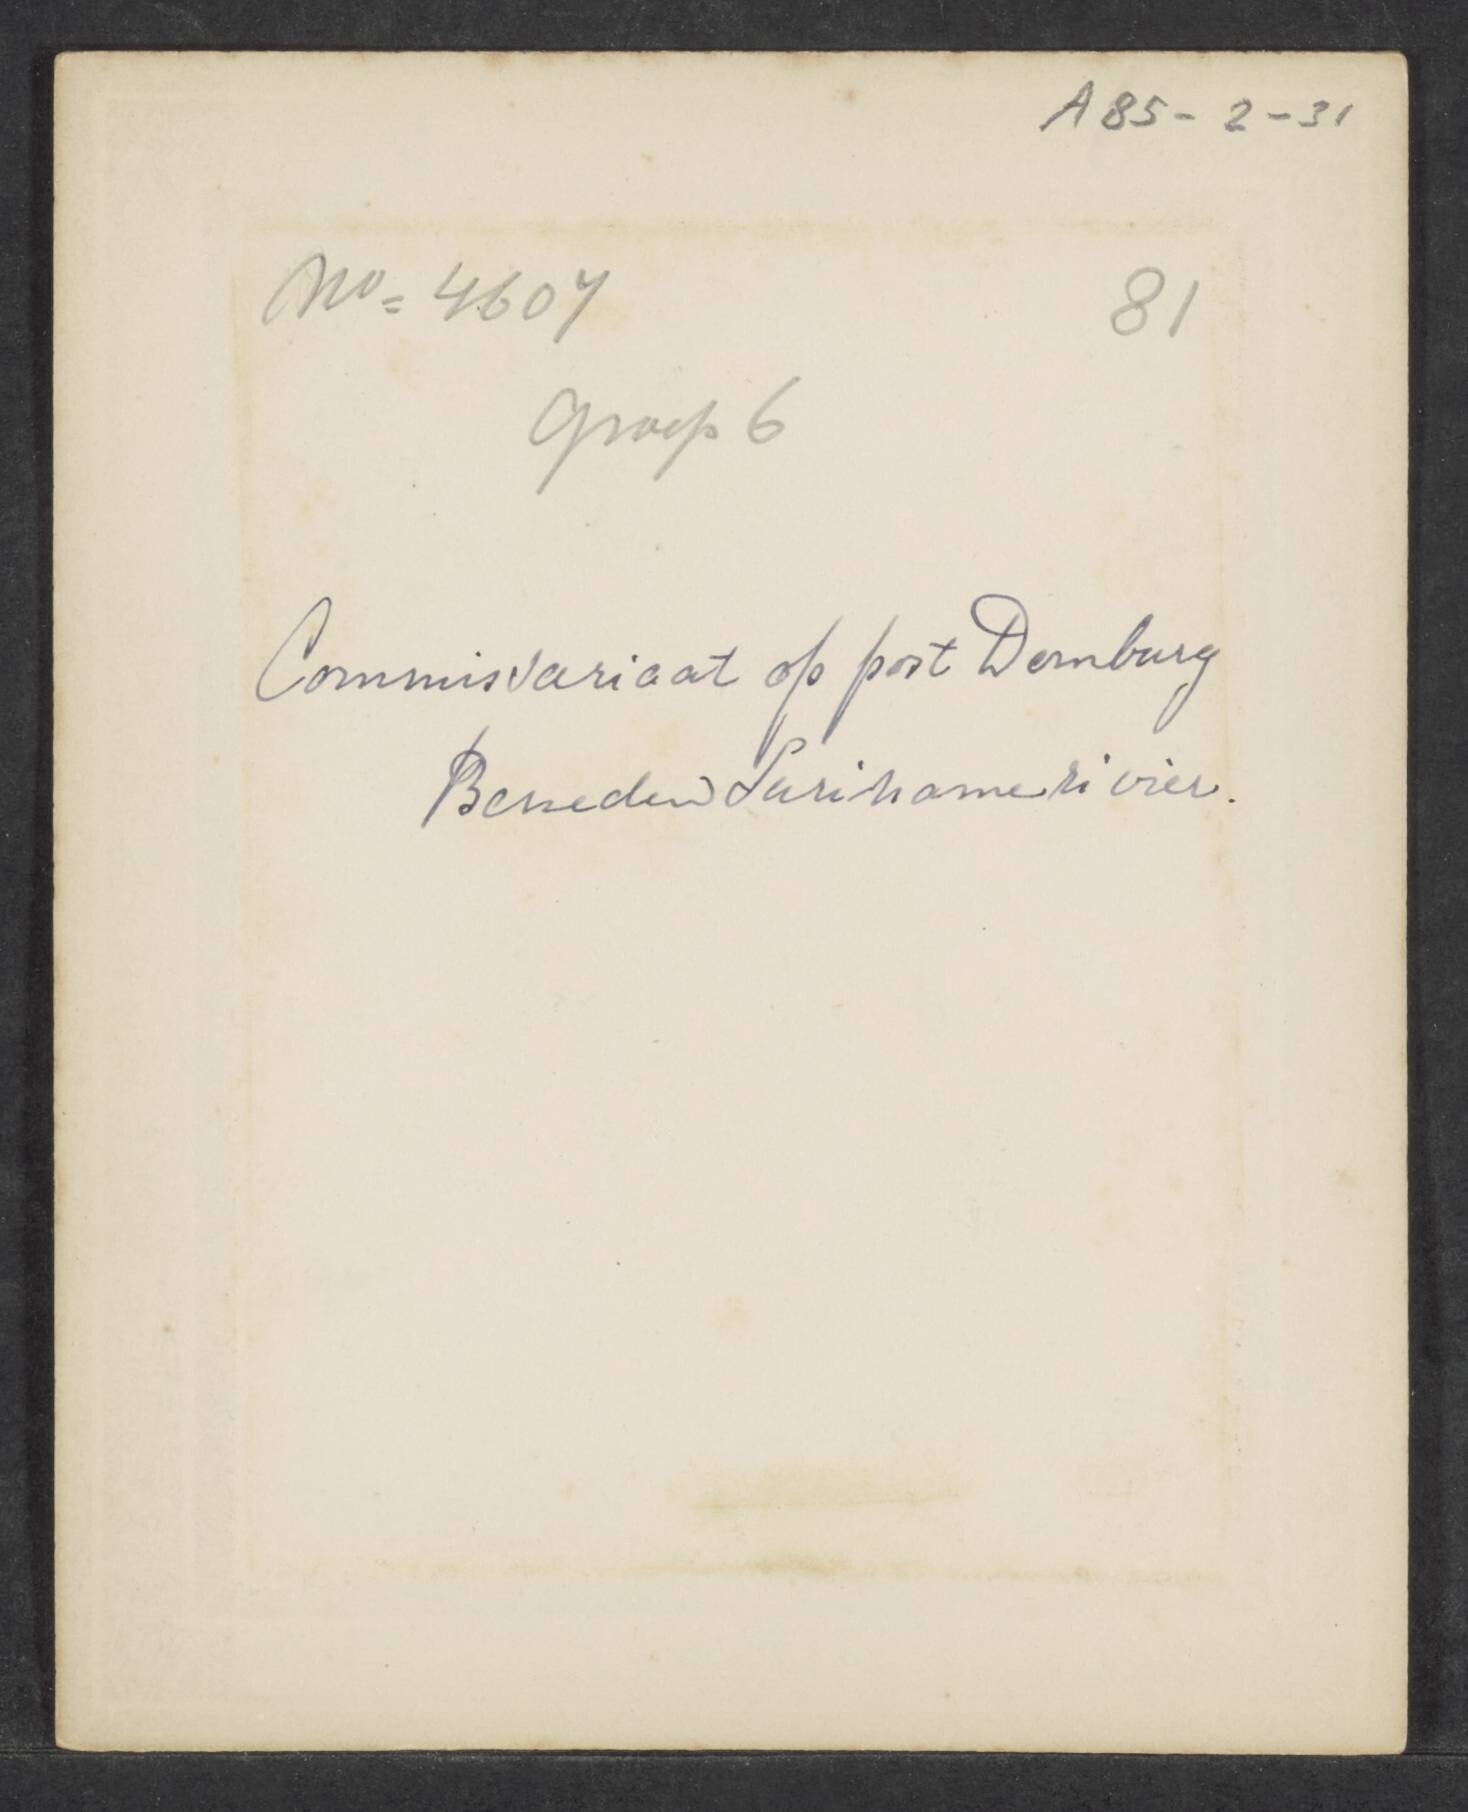 A85-2-31
No= 4607
81
Groep 6
Commissariaat op post Domburg
Beneden Surinamerivier.